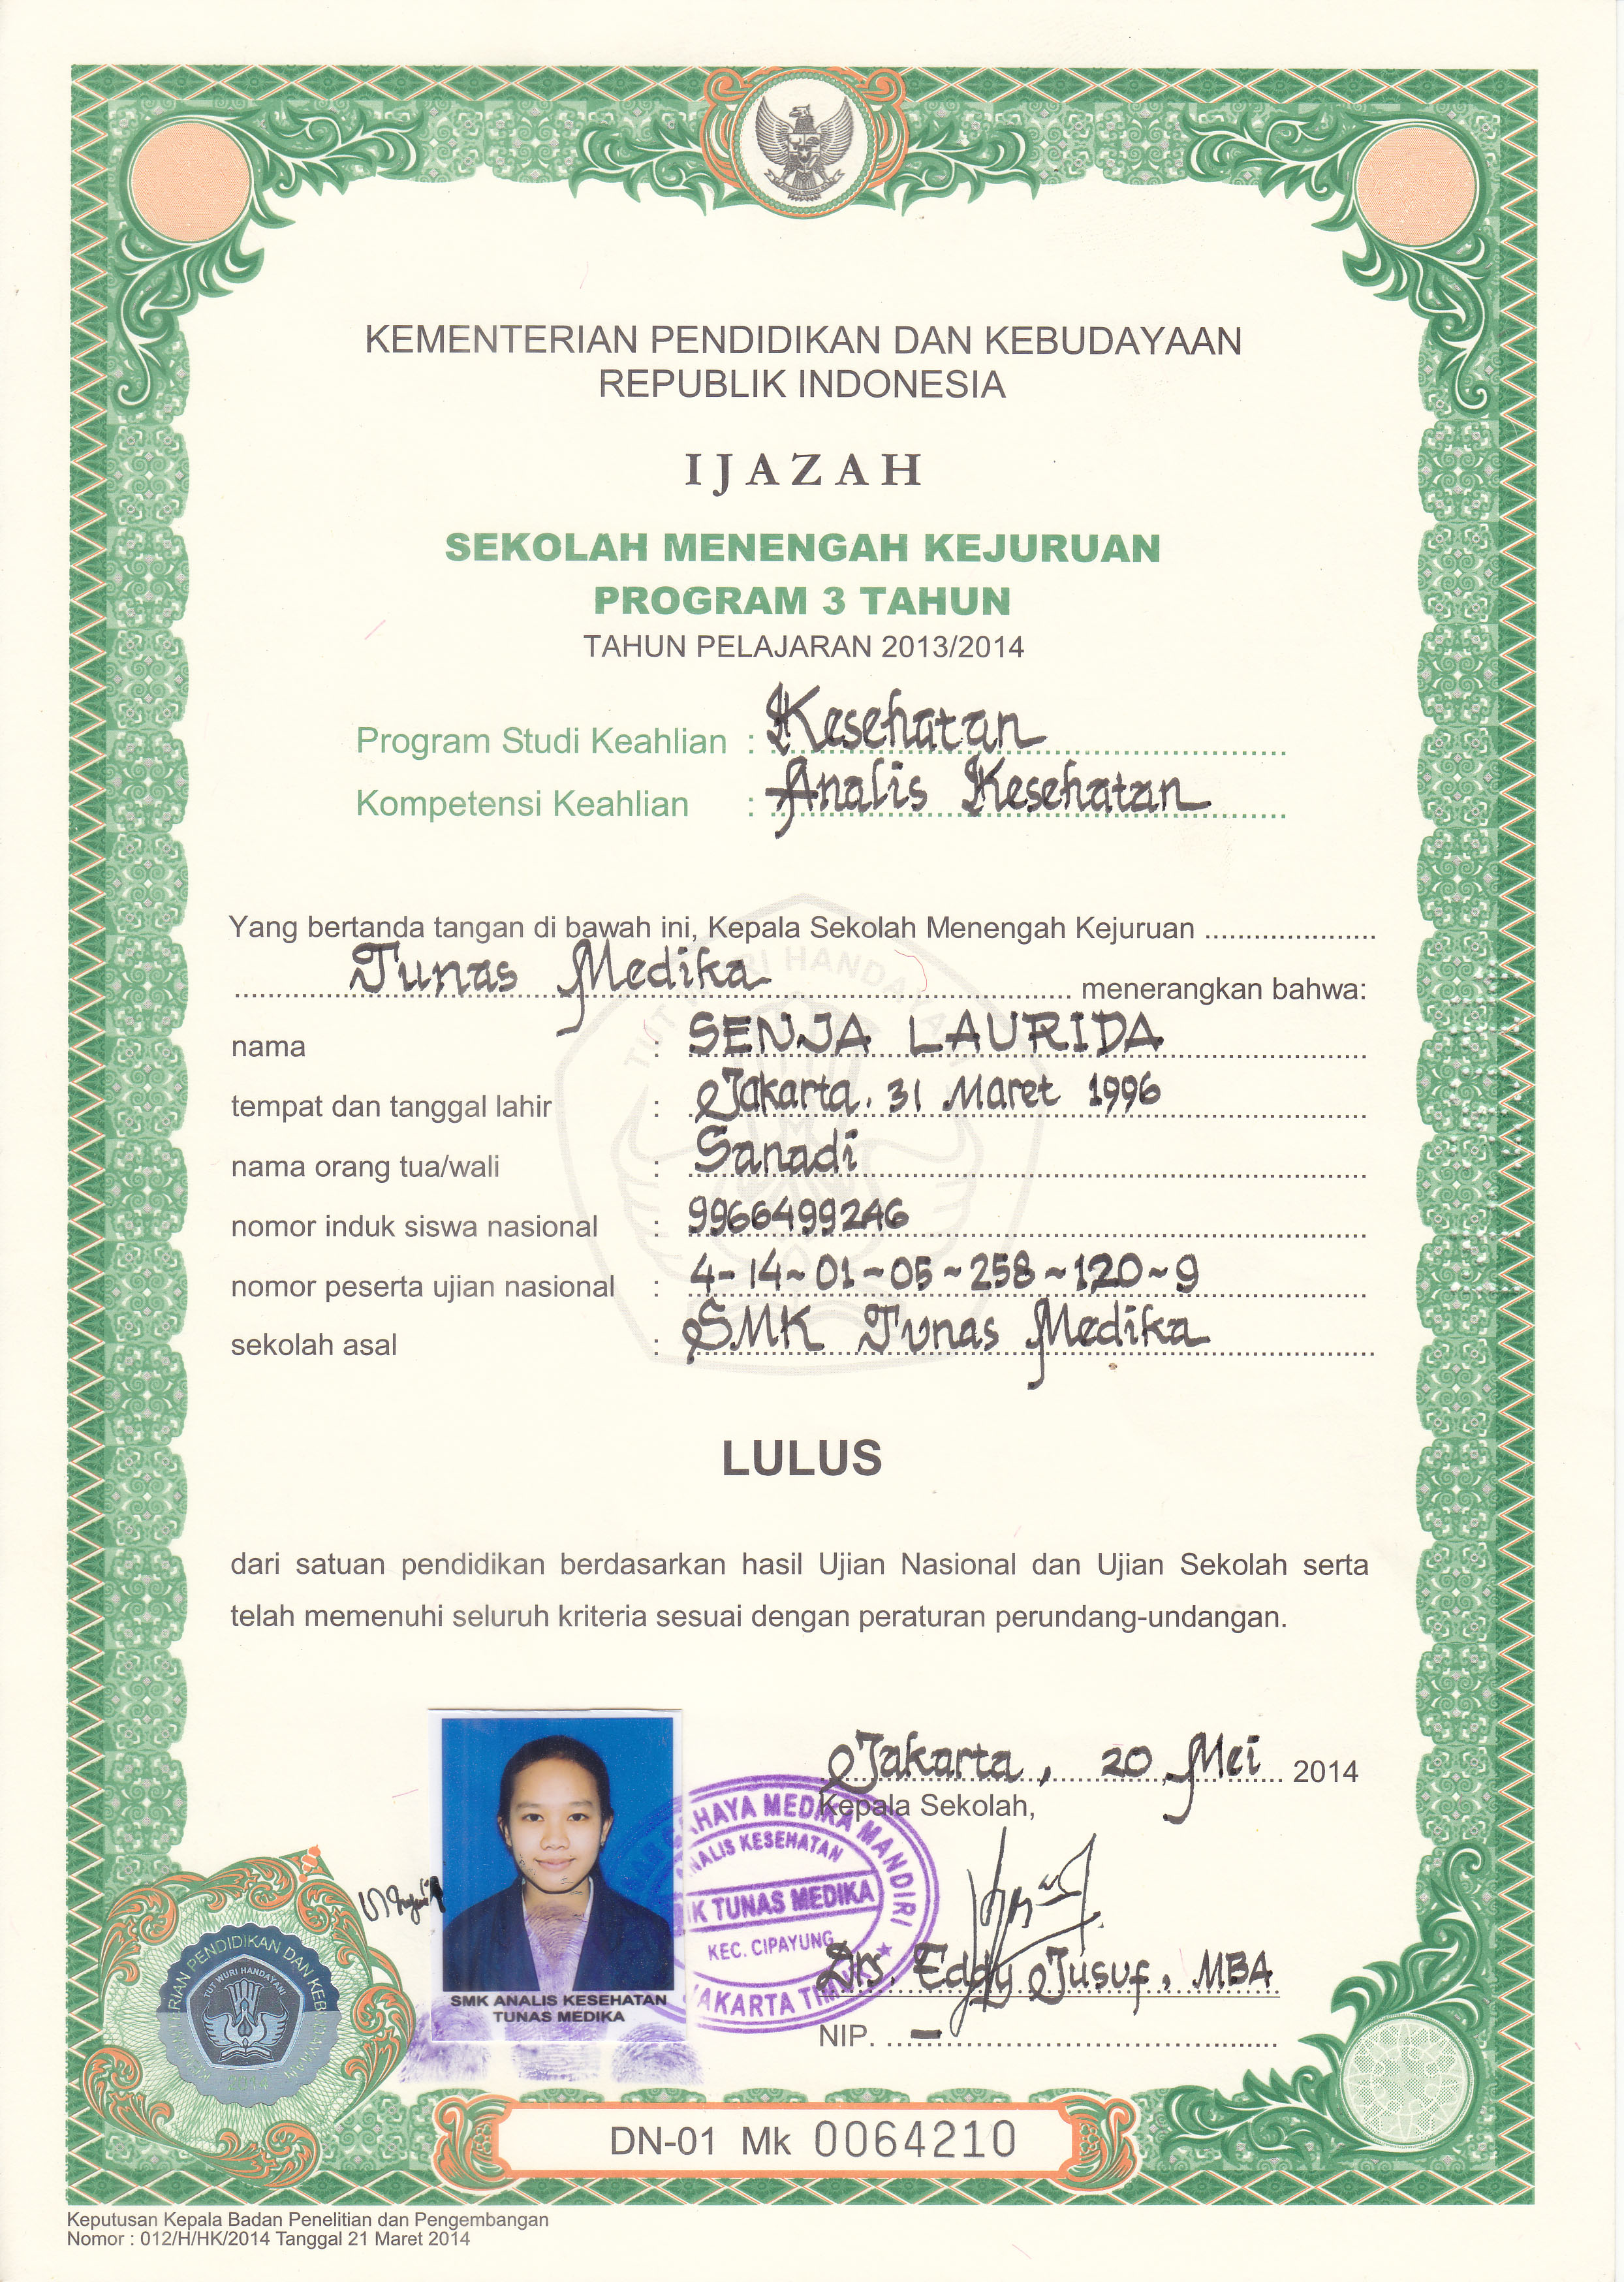 KEMENTERIAN PENDIDIKAN DAN KEBUDAYAAN
REPUBLIK INDONESIA
IJAZAH
SEKOLAH MENENGAH KEJURUAN
PROGRAM 3 TAHUN
TAHUN PELAJARAN 2013/2014
Program Studi Keahlian : Kesehatan
Kompetensi Keahlian : Analis Kesehatan
Yang bertanda tangan di bawah ini, Kepala Sekolah Menengah Kejuruan ......................
Tunas Medika menerangkan bahwa:
nama : SENJA LAURIDA
tempat dan tanggal lahir : Jakarta, 31 Maret 1996
nama orang tua/wali : Sanadi
nomor induk siswa nasional : 9966499246
nomor peserta ujian nasional : 4-14-01-05-258-120-9
sekolah asal : SMK Tunas Medika
LULUS
dari satuan pendidikan berdasarkan hasil Ujian Nasional dan Ujian Sekolah serta
telah memenuhi seluruh kriteria sesuai dengan peraturan perundang-undangan.
Jakarta, 20 Mei 2014
Kepala Sekolah,
CAHAYA MEDIKA MANDIRI
ANALIS KESEHATAN
TUNAS MEDIKA
KEC. CIPAYUNG
JAKARTA TIMUR
Drs. Eddy Jusuf, MBA
NIP. -
SMK ANALIS KESEHATAN
TUNAS MEDIKA
PENDIDIKAN DAN KEB
TUT WURI HANDAYANI
2014
DN-01 Mk 0064210
Keputusan Kepala Badan Penelitian dan Pengembangan
Nomor : 012/H/HK/2014 Tanggal 21 Maret 2014